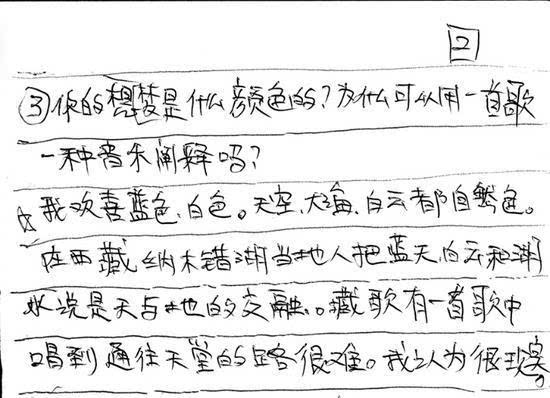 2
③你的想梦是什么颜色的？为什么可以用一首歌
一种音乐阐释吗？
我欢喜蓝色、白色。天空、大海、白云都自然色。
在西藏纳木错湖当地人把蓝天、白云和湖
水说是天与地的交融。藏歌有一首歌中
唱到通往天堂的路很难。我认为很现实。